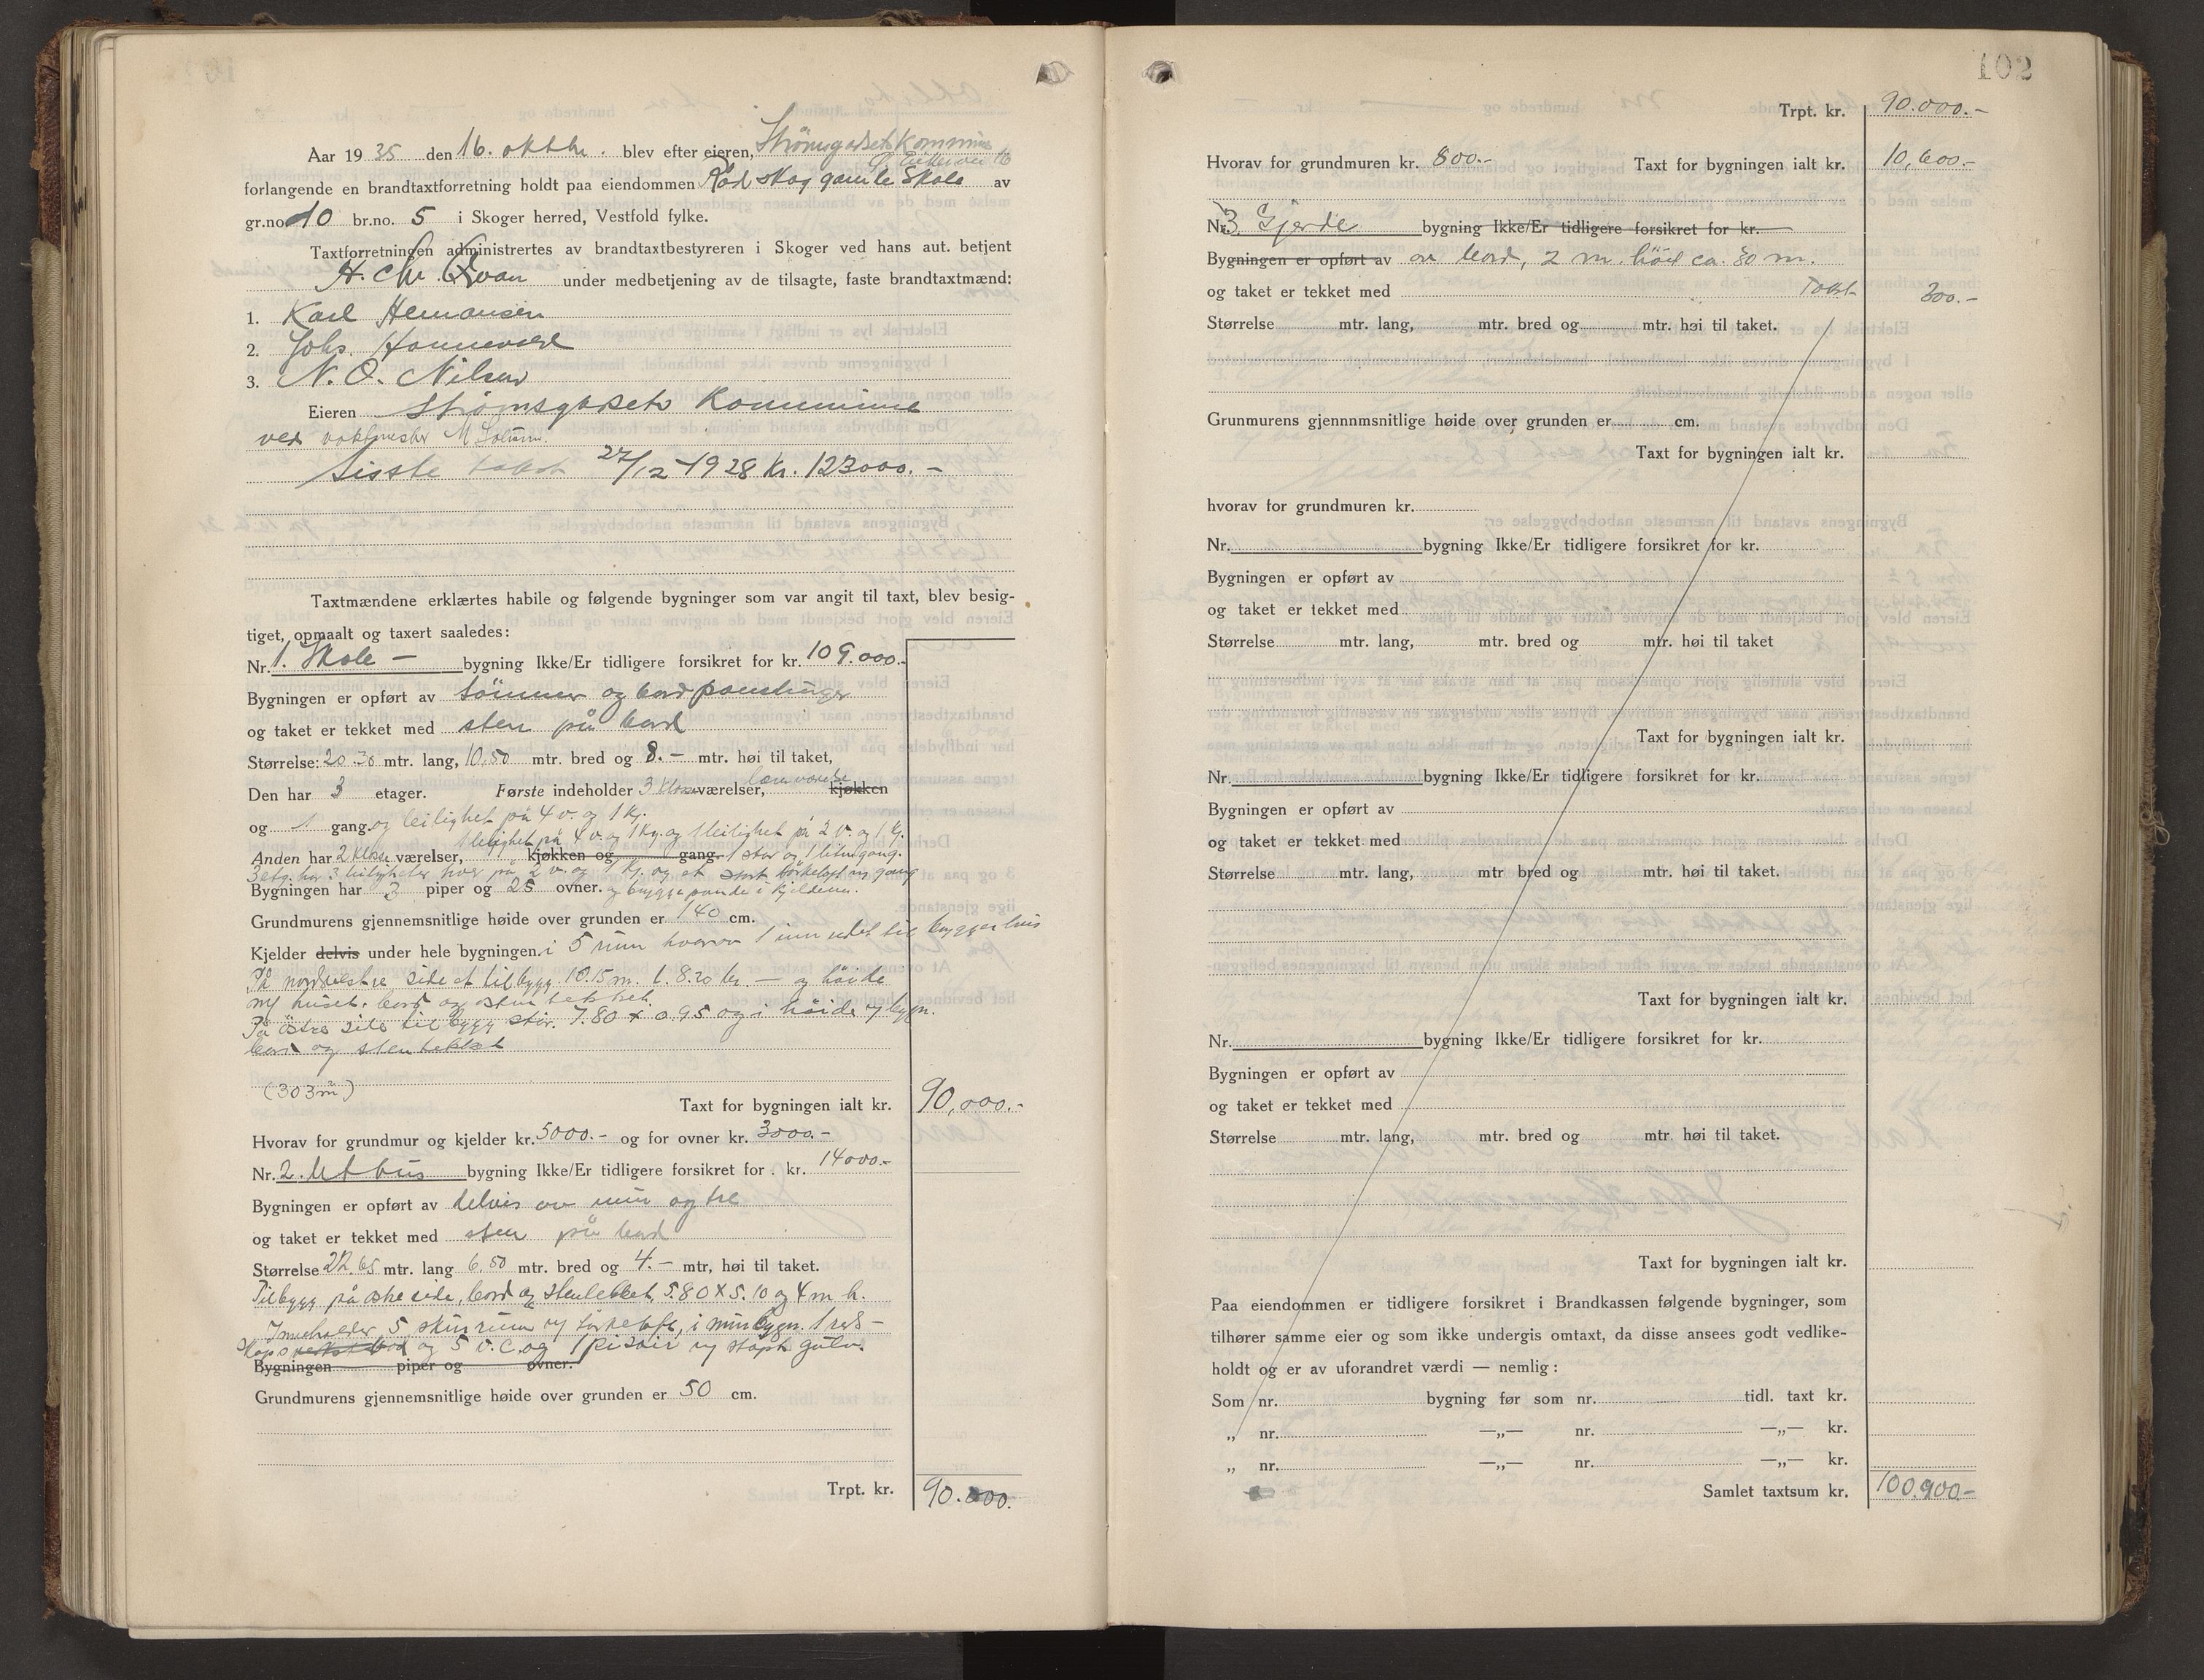 Aar 1935 den 16. oktbr. blev efter eieren, Strømsgodset Kommune
forlangende en brandtaxtforretning holdt paa eiendommen Rødskog gamle Skole av
gr.no. 10 br.no. 5 i Skoger herred, Vestfold fylke.
Taxtforretningen administrertes av brandtaxtbestyreren i Skoger ved hans aut. betjent
H. Chr. under medbetjening av de tilsagte, faste brandtaxtmænd:
1. Karl Hermansen
2. Johs. Hannevold
3. N. O. Nilsen
Eieren Strømsgodset Kommune
ved vaktmester M
Siste takst 27/12-1928 Kr. 123000.-
Taxtmændene erklærtes habile og følgende bygninger som var angit til taxt, blev besig-
tiget, opmaalt og taxert saaledes:
Nr. 1. Skole - bygning Ikke/Er tidligere forsikret for kr. 109.000.-
Bygningen er opført av tømmer og bord panelinger
og taket er tekket med sten på bord
Størrelse: 20.30 mtr. lang, 10,50 mtr. bred og 8.- mtr. høi til taket,
Den har 3 etager. Første indeholder 3 Klasseværelser, lærerværelse kjøkken
og 1 gang. og leilighet på 4 v. og 1 Kj.
1 leilighet på 4 v. og 1 Kj. og 1 leilighet på 2 v. og 1 Kj.
Anden har 2 Klasse værelser, kjøkken og gang. 1 stor og 1 liten gang.
3 etg. har 3 leiligheter hver på 2 v. og 1 Kj. og et stort tørkeloft og gang
Bygningen har 3 piper og 25 ovner. og bryggepande i kjelderen.
Grundmurens gjennemsnitlige høide over grunden er 140 cm.
Kjelder delvis under hele bygningen. i 5 rum hvorav 1 innredet til bryggerhus
På nordvestre side et tilbygg 10.15 m. l. 8.20 br. — og høide
m/ huset. bord og stentekket.
På østre side tilbygg stør. 7.80 x 0.95 og i høide m/ bygn.
bord og stentekket
(303 m²)
Taxt for bygningen ialt kr. 90,000.-
Hvorav for grundmur og kjelder kr. 5000.- og for ovner kr. 3000.-
Nr. 2. Uthus bygning Ikke/Er tidligere forsikret for kr. 14000.-
Bygningen er opført av delvis av mur og tre
og taket er tekket med sten på bord
Størrelse 22.65 mtr. lang 6.50 mtr. bred og 4.- mtr, høi til taket.
Tilbygg på østre side, bord og stentekket 5.80 X 5.10 og 4 m h.
Inneholder 5 skurrum m/ tørkeloft, i murbygn. 1 red-
skaps og 5 v.c. og 1 pisoir m/ støpt gulv.
Bygningen piper og ovner.
Grundmurens gjennemsnitlige høide over grunden er 50 cm.
Trpt. kr. 90.000.
102
Trpt. kr. 90.000.-
Hvorav for grundmuren kr. 800.- Taxt for bygningen ialt kr. 10,600.-
Nr. 3 Gjerde bygning Ikke/Er tidligere forsikret for kr.
Bygningen er opført av av bord, 2 m. høit ca. 30 m.
og taket er tekket med Takst 300.-
Størrelse mtr. lang, mtr. bred og mtr. høi til taket.
Grunmurens gjennnmsnitlige høide over grunden er cm.
Taxt for bygningen ialt kr.
hvorav for grundmuren kr.
Nr. bygning Ikke/Er tidligere forsikret for kr.
Bygningen er opført av
og taket er tekket med
Størrelse mtr. lang, mtr. bred og mtr. høi til taket
Taxt for bygningen ialt kr.
Nr. bygning Ikke/Er tidligere forsikret for kr.
Bygningen er opført av
og taket er tekket med
Størrelse mtr. lang, mtr bred og mtr. høi til taket.
Taxt for bygningen ialt kr.
Nr. bygning Ikke/Er tidligere forsikret for kr.
Bygningen er opført av
og taket er tekket med
Størrelse mtr. lang, mtr. bred og mtr. høi til taket.
Taxt for bygningen ialt kr.
Paa eiendommen er tidligere forsikret i Brandkassen følgende bygninger, som
tilhører samme eier og som ikke undergis omtaxt, da disse ansees godt vedlike-
holdt og er av uforandret værdi — nemlig:
Som nr. bygning før som nr. tidl. taxt kr.
„ nr. —„— nr. —„— kr.
„ nr. —„— nr. —„— kr.
Samlet taxtsum kr. 100.900.-